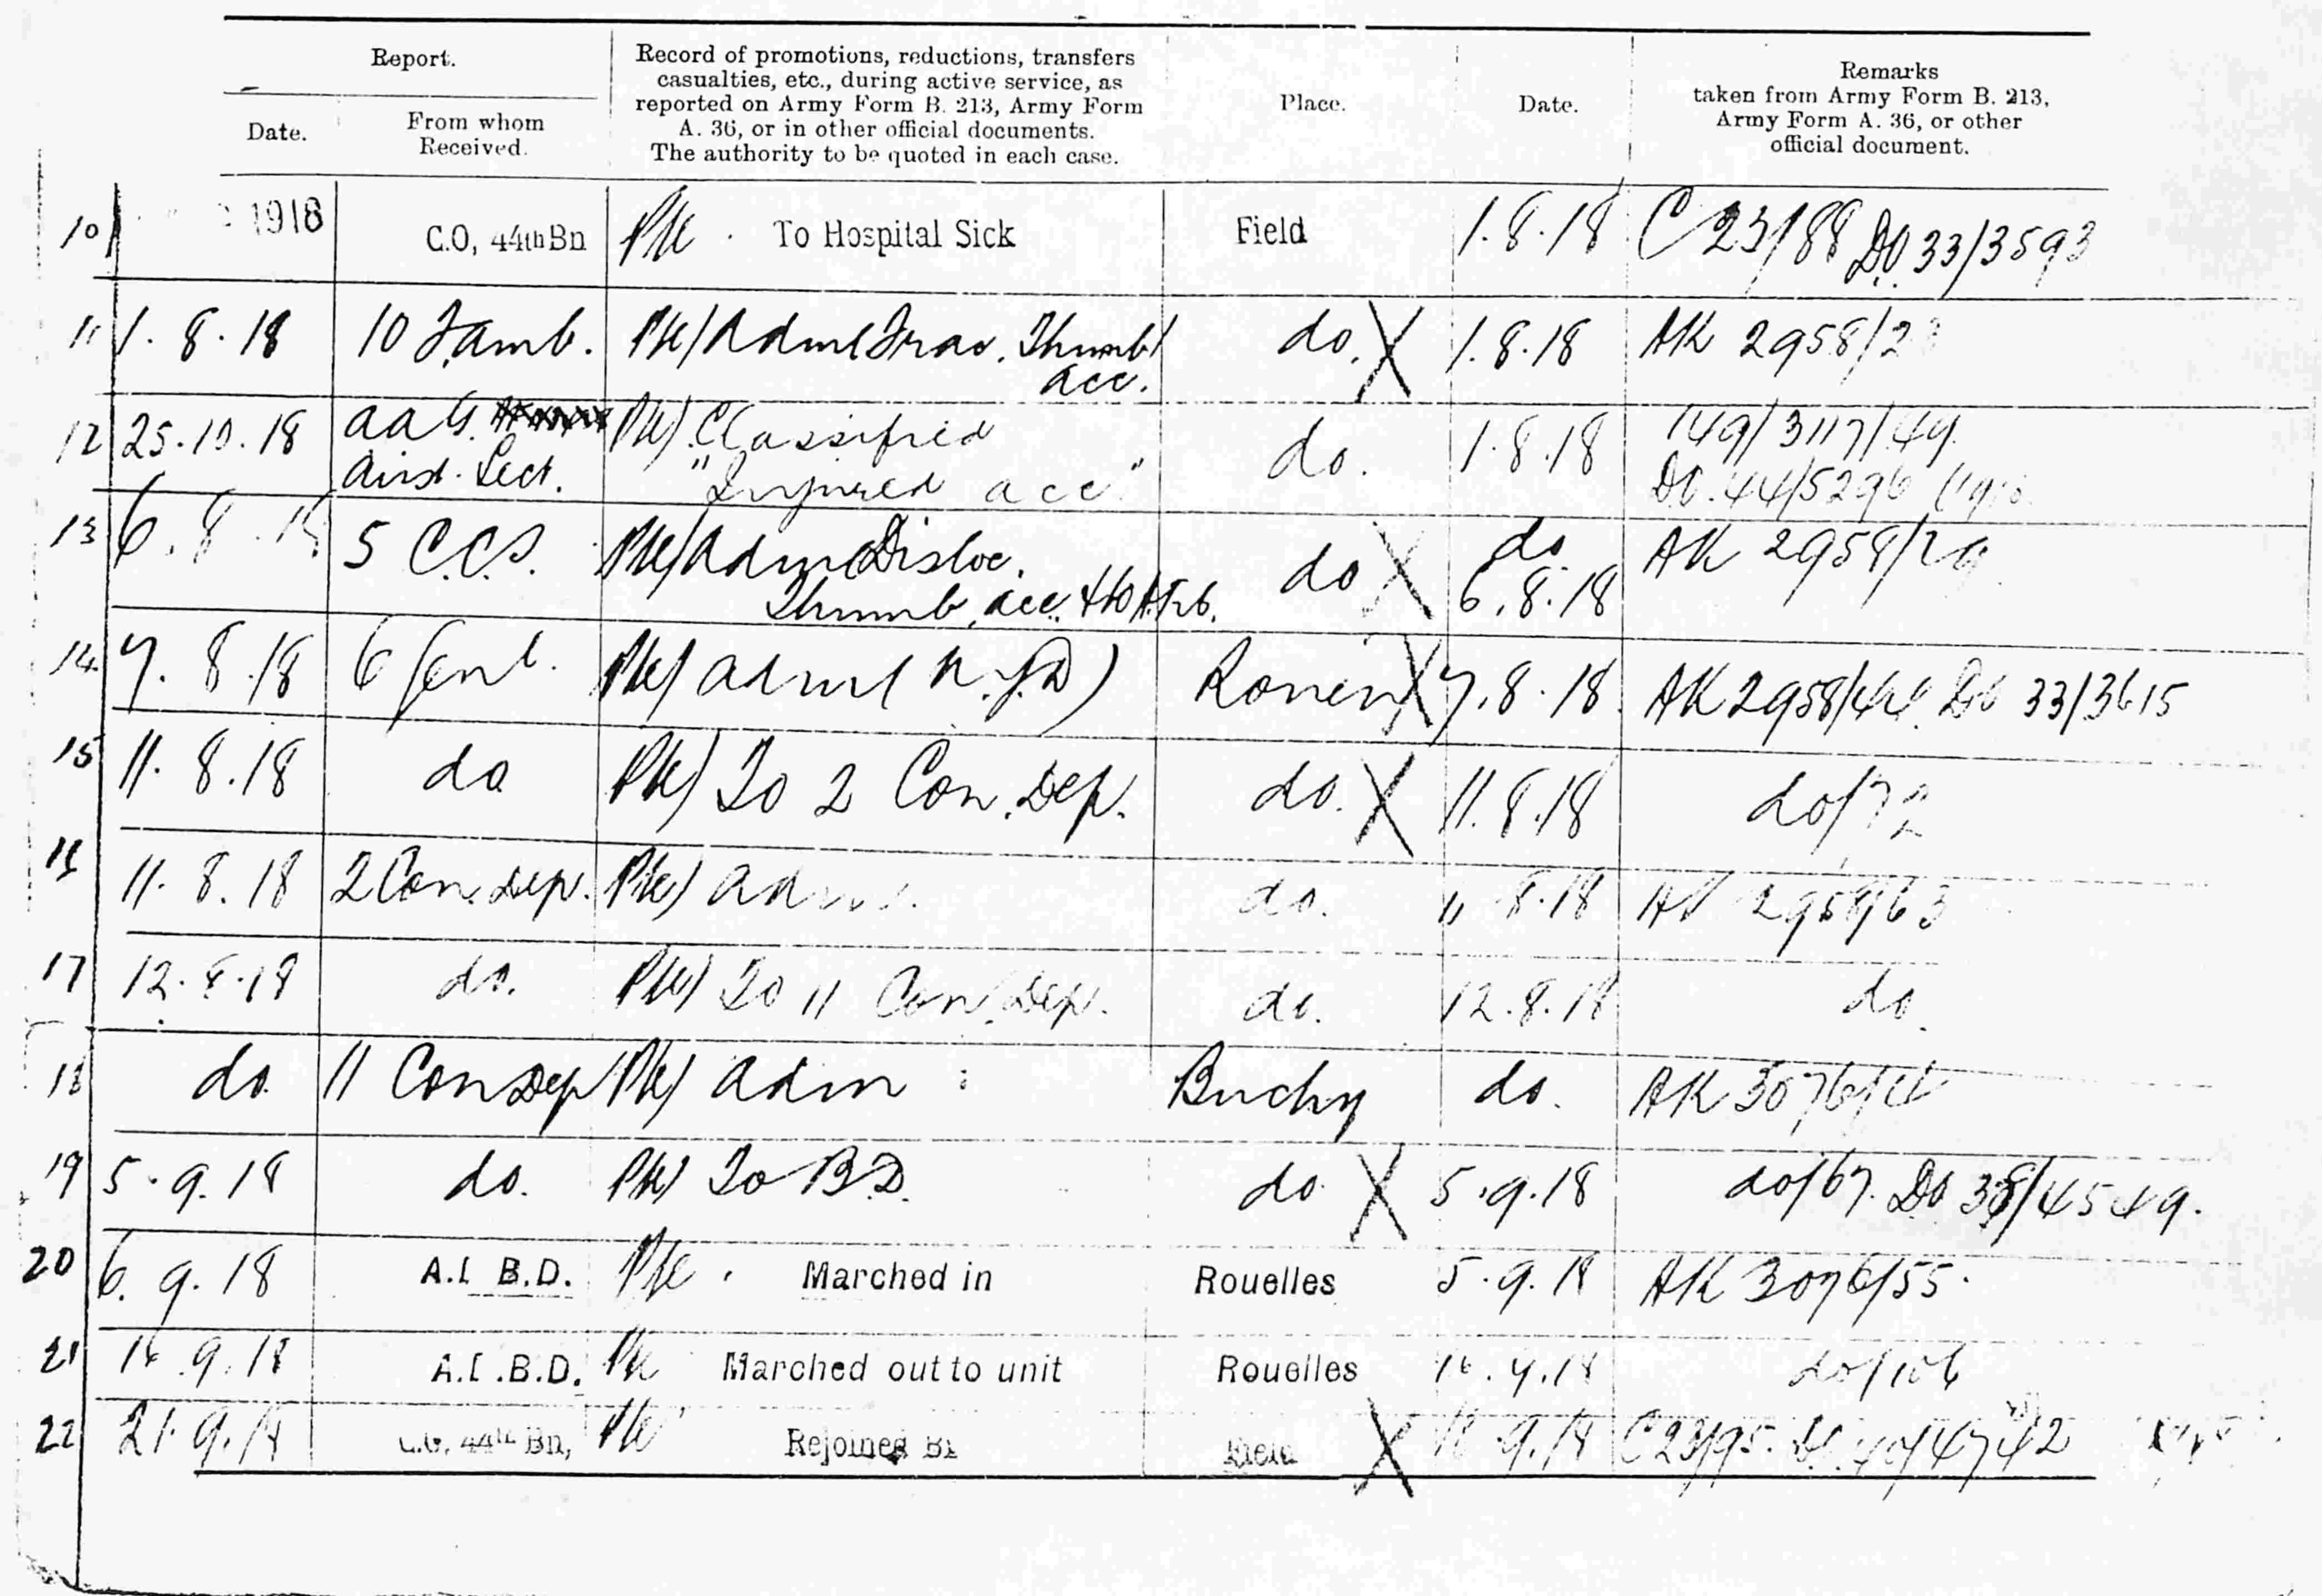 Report.
Date.
From whom
Received.
Record of promotions, reductions, transfers
casualties, etc., during active service, as
reported on Army Form B. 213, Army Form
A. 36, or in other official documents.
The authority to be quoted in each case.
Place.
Date.
Remarks
taken from Army Form B. 213,
Army Form A. 36, or other
official document.
10 1918 C.O, 44th Bn Pte To Hospital Sick Field 1.8.18 C 23/88 DO 33/3593
11 1.8.18 10 F.amb. Pte/ Adm Frac. Thumb/ do. X 1.8.18 AK 2958/
acc.
12 25.10.18 AAG. Pte/ Classified do. 1.8.18 149/3117/49.
Aust. Sect. "Injured acc" DO. 44/5296
13 6.8.18 5 C.C.S. Pte/ Adm Disloc. do X do AK 2958/
Thumb, acc. 6.8.18
14 7.8.18 6 Genl. Pte/ Adml N.Y.D) Rouen X 7.8.18 AK 2958/44 DO 33/3615
15 11.8.18 do Pte/ To 2 Con. Dep. do. X 11.8.18 do/72
11.8.18 2 Con. Dep. Pte/ Adm. do. 11.8.18 AK 2958/63
17 12.8.18 do. Pte/ To 11 Con. Dep. do. 12.8.18 do.
18 do. 11 Con Dep Pte/ Adm Buchy do. AK 3076/
19 5.9.18 do. Pte/ To B.D. do X 5.9.18 do/67. DO 38/4549.
20 6.9.18 A.I. B.D. Pte. Marched in Rouelles 5.9.18 AK 3076/55.
21 16.9.18 A.I.B.D. Pte Marched out to unit Rouelles 16.9.18 do/106
22 21.9.18 C.O, 44th Bn, Pte Rejoined Bn Field X 18.9.18 C23/95. DO. 40/4742